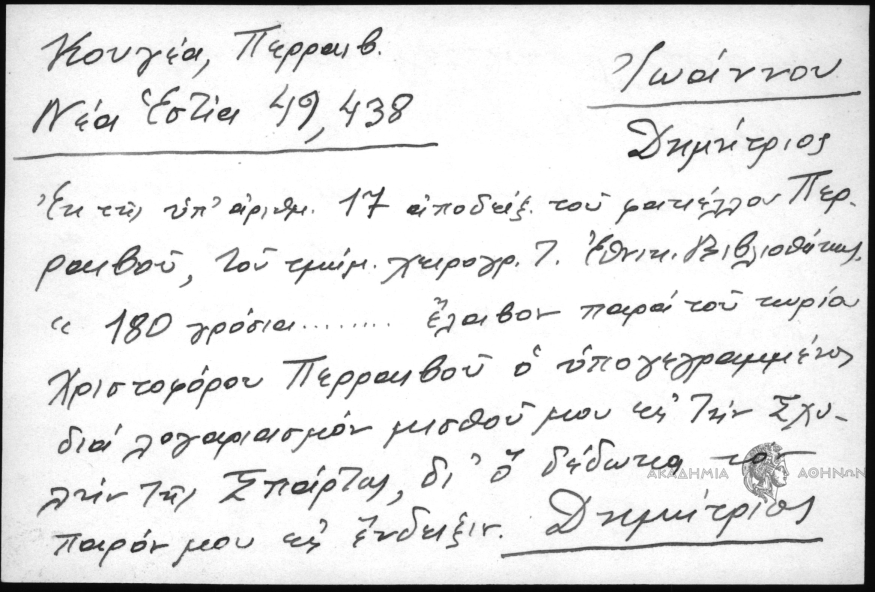 Κουγέα, Περραιβ.
Νέα Ἑστία 49, 438
Ἰωάννου
Δημήτριος
Ἐκ τῆς ὑπ' ἀριθμ. 17 ἀποδείξ. τοῦ φακέλλου Περ-
ραιβοῦ, τοῦ τμήμ. χειρογρ. τ. Ἐθνικ. Βιβλιοθήκης.
“ 180 γρόσια........ ἔλαβον παρά τοῦ κυρίου
Χριστοφόρου Περραιβοῦ ὁ ὑπογεγραμμένος
διά λογαριασμόν μισθοῦ μου εἰς τήν Σχο-
λήν τῆς Σπάρτης, δι' ὅ δέδωκα το
παρόν μου εἰς ἔνδειξιν. Δημήτριος
ΑΚΑΔΗΜΙΑ ΑΘΗΝΩΝ